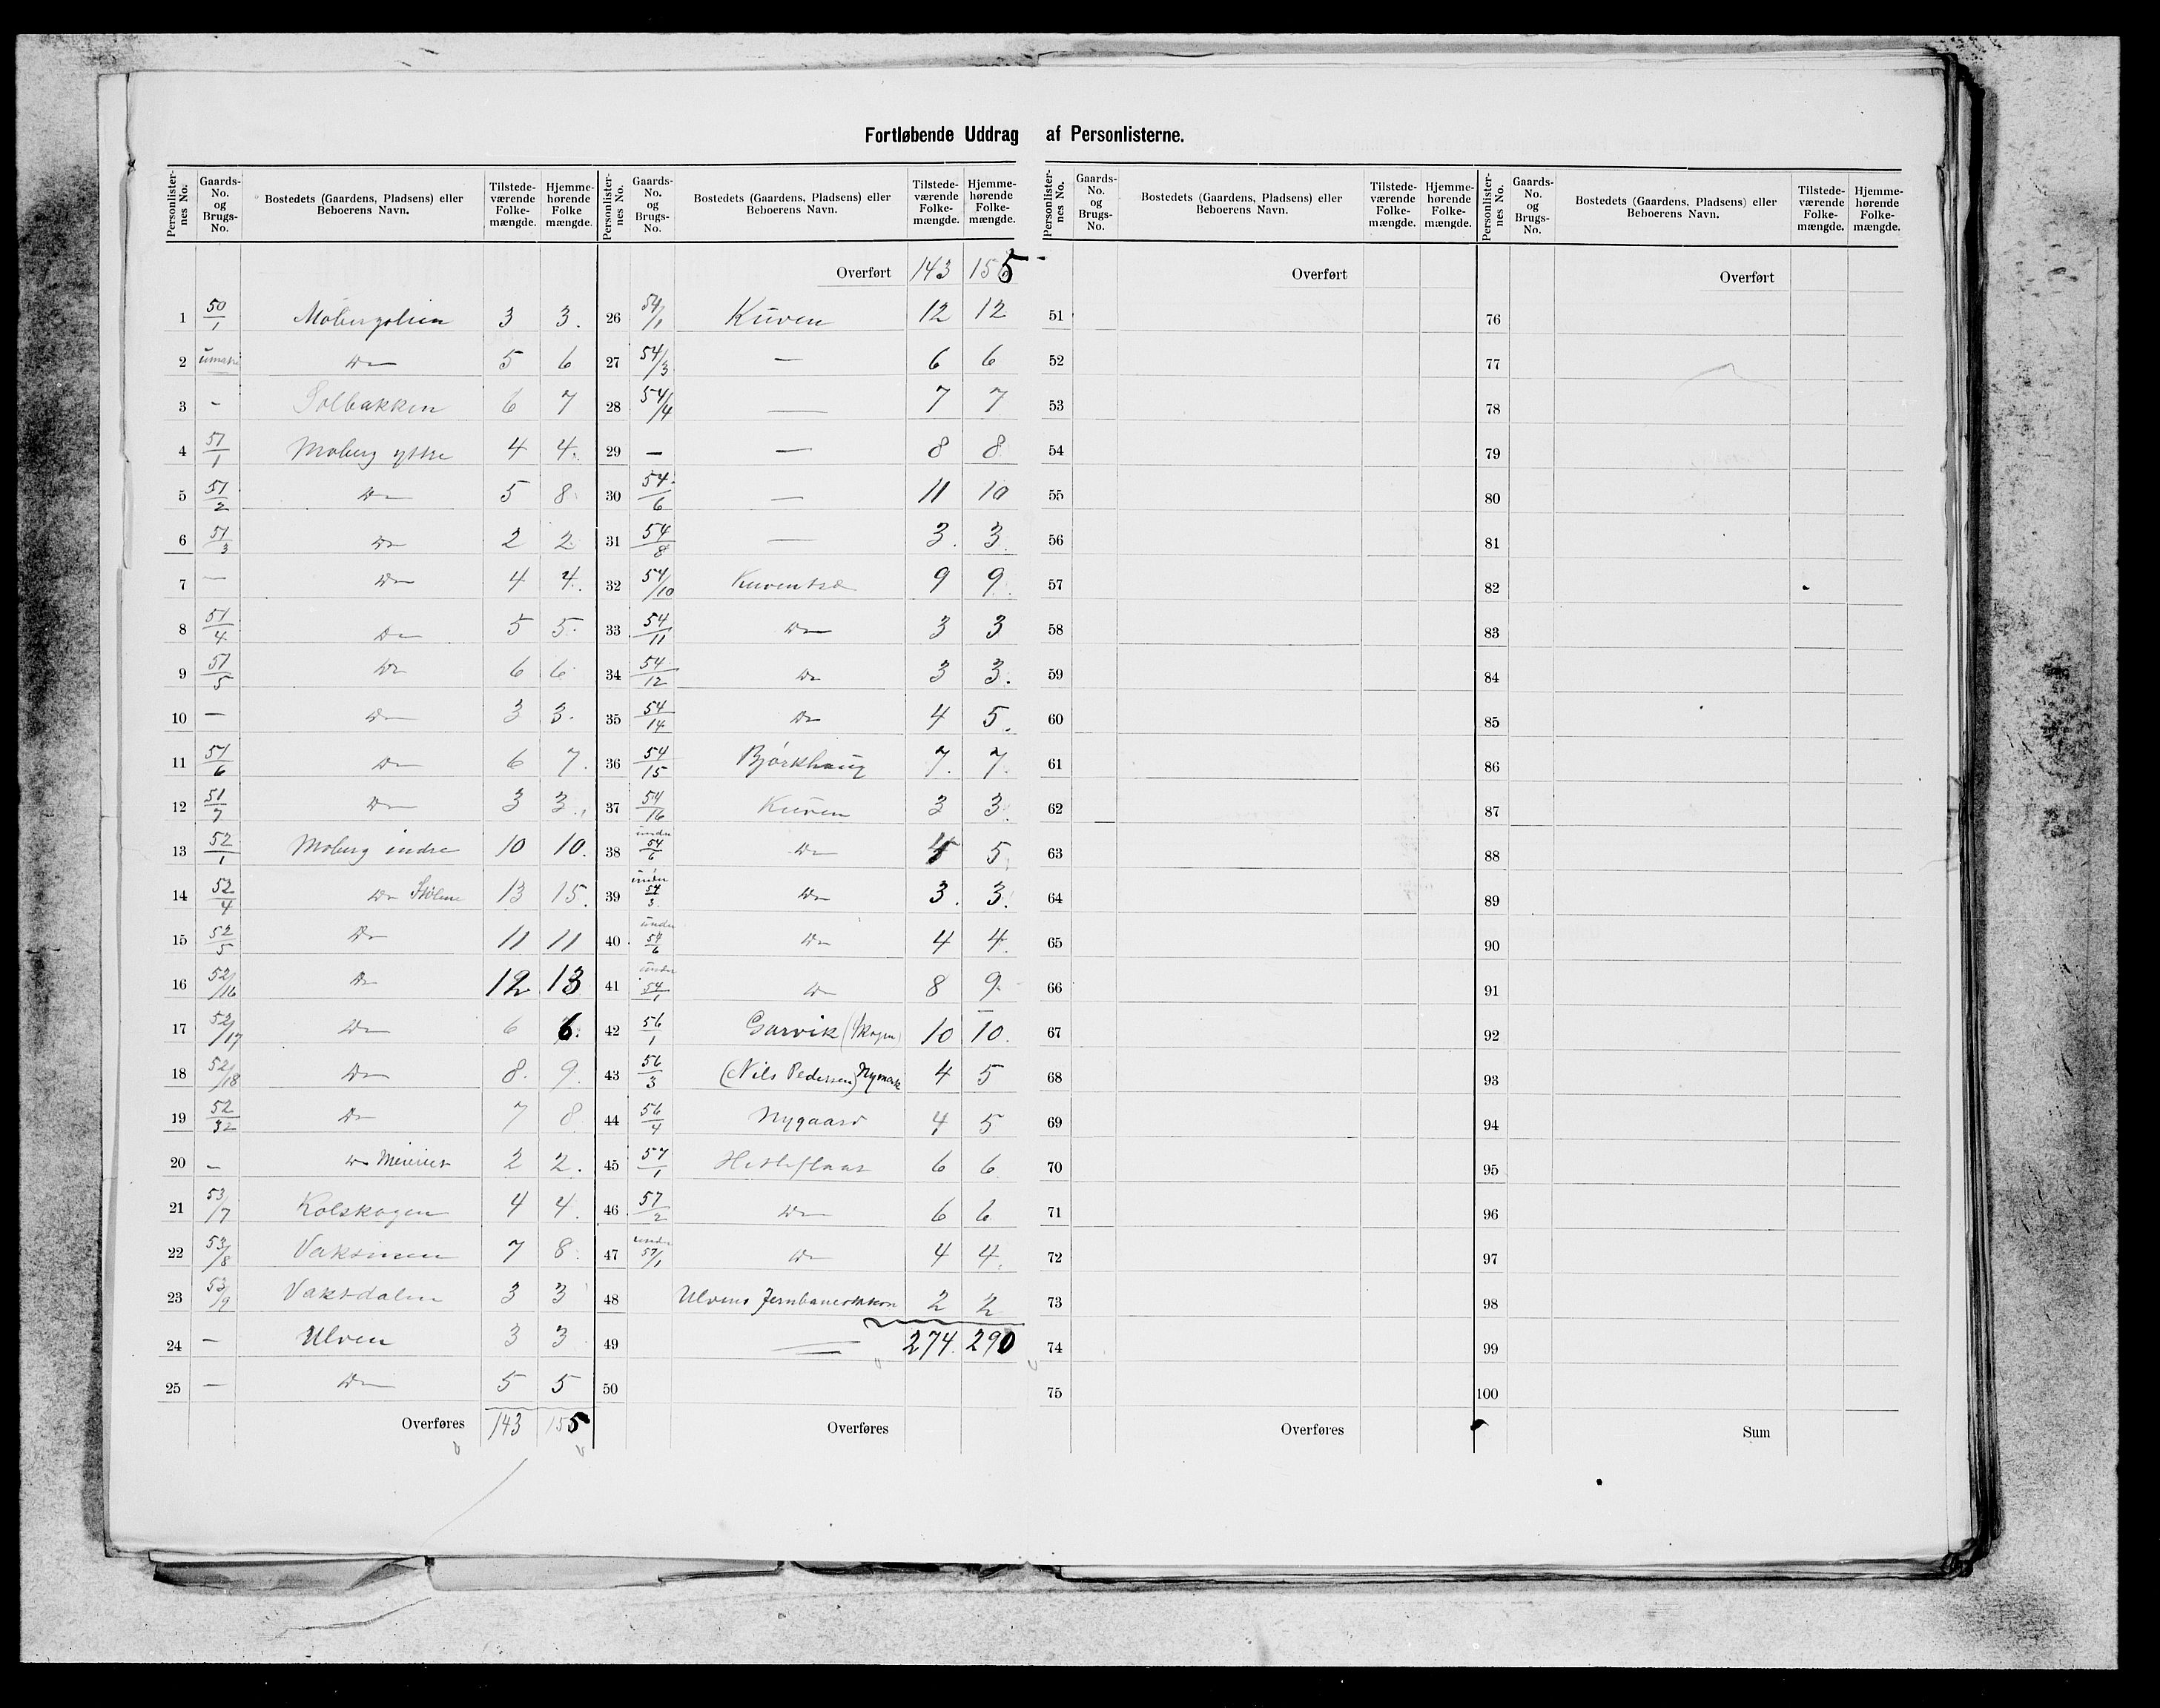 Fortløbende Uddrag af Personlisterne.
Personlisternes No. | Gaards-No. og Brugs-No. | Bostedets (Gaardens, Pladsens) eller Beboerens Navn. | Tilstedeværende Folkemængde. | Hjemmehørende Folkemængde.
1 50/1 Mobergslien 3 3.
2 umatr Do 5 6
3 - Solbakken 6 7
4 51/1 Moberg ytre 4 4.
5 51/2 Do 5 8
6 51/3 Do 2 2
7 — Do 4 4.
8 51/4 Do 5 5.
9 51/5 Do 6 6
10 — Do 3 3.
11 51/6 Do 6 7.
12 51/7 Do 3 3.
13 52/1 Moberg indre 10 10.
14 52/4 Do 13 15.
15 52/5 Do 11 11
16 52/16 Do 12 13
17 52/17 Do 6 6.
18 52/18 Do 8. 9.
19 52/32 Do 7 8
20 - Do Meieriet 2 2.
21 53/7 Kolskogen 4 4.
22 53/8 7 8.
23 53/9 Vaksdalen 3 3
24 — Ulven 3 3
25 — Do 5 5
Overføres 143 155
Overført 143 155
26 54/1 Kuven 12 12
27 54/3 — 6 6
28 54/4 — 7 7
29 — — 8 8
30 54/6 — 11 10
31 54/8 — 3. 3.
32 54/10 9 9.
33 54/11 Do 3 3
34 54/12 Do 3 3.
35 54/14 Do 4 5.
36 54/15 Bjørkhaug 7. 7.
37 54/16 Kuven 3 3.
38 under 54/6 Do 5
39 under 54/3 Do 3. 3.
40 under 54/6 Do 4 4.
41 under 54/1 Do 8 9.
42 56/1 Garvik (Skogen) 10 10.
43 56/3 (Nils Pedersen) Nymark 4 5
44 56/4 Nygaard 4 5
45 57/1 Hetleflaat 6 6
46 57/2 Do 6 6
47 under 57/1 Do 4 4.
48 Ulvens 2 2
49 274. 290
50
Overføres
Personlisternes No. | Gaards-No. og Brugs-No. | Bostedets (Gaardens, Pladsens) eller Beboerens Navn. | Tilstedeværende Folkemængde. | Hjemmehørende Folkemængde.
Overført
51
52
53
54
55
56
57
58
59
60
61
62
63
64
65
66
67
68
69
70
71
72
73
74
75
Overføres
Overført
76
77
78
79
80
81
82
83
84
85
86
87
88
89
90
91
92
93
94
95
96
97
98
99
100
Sum